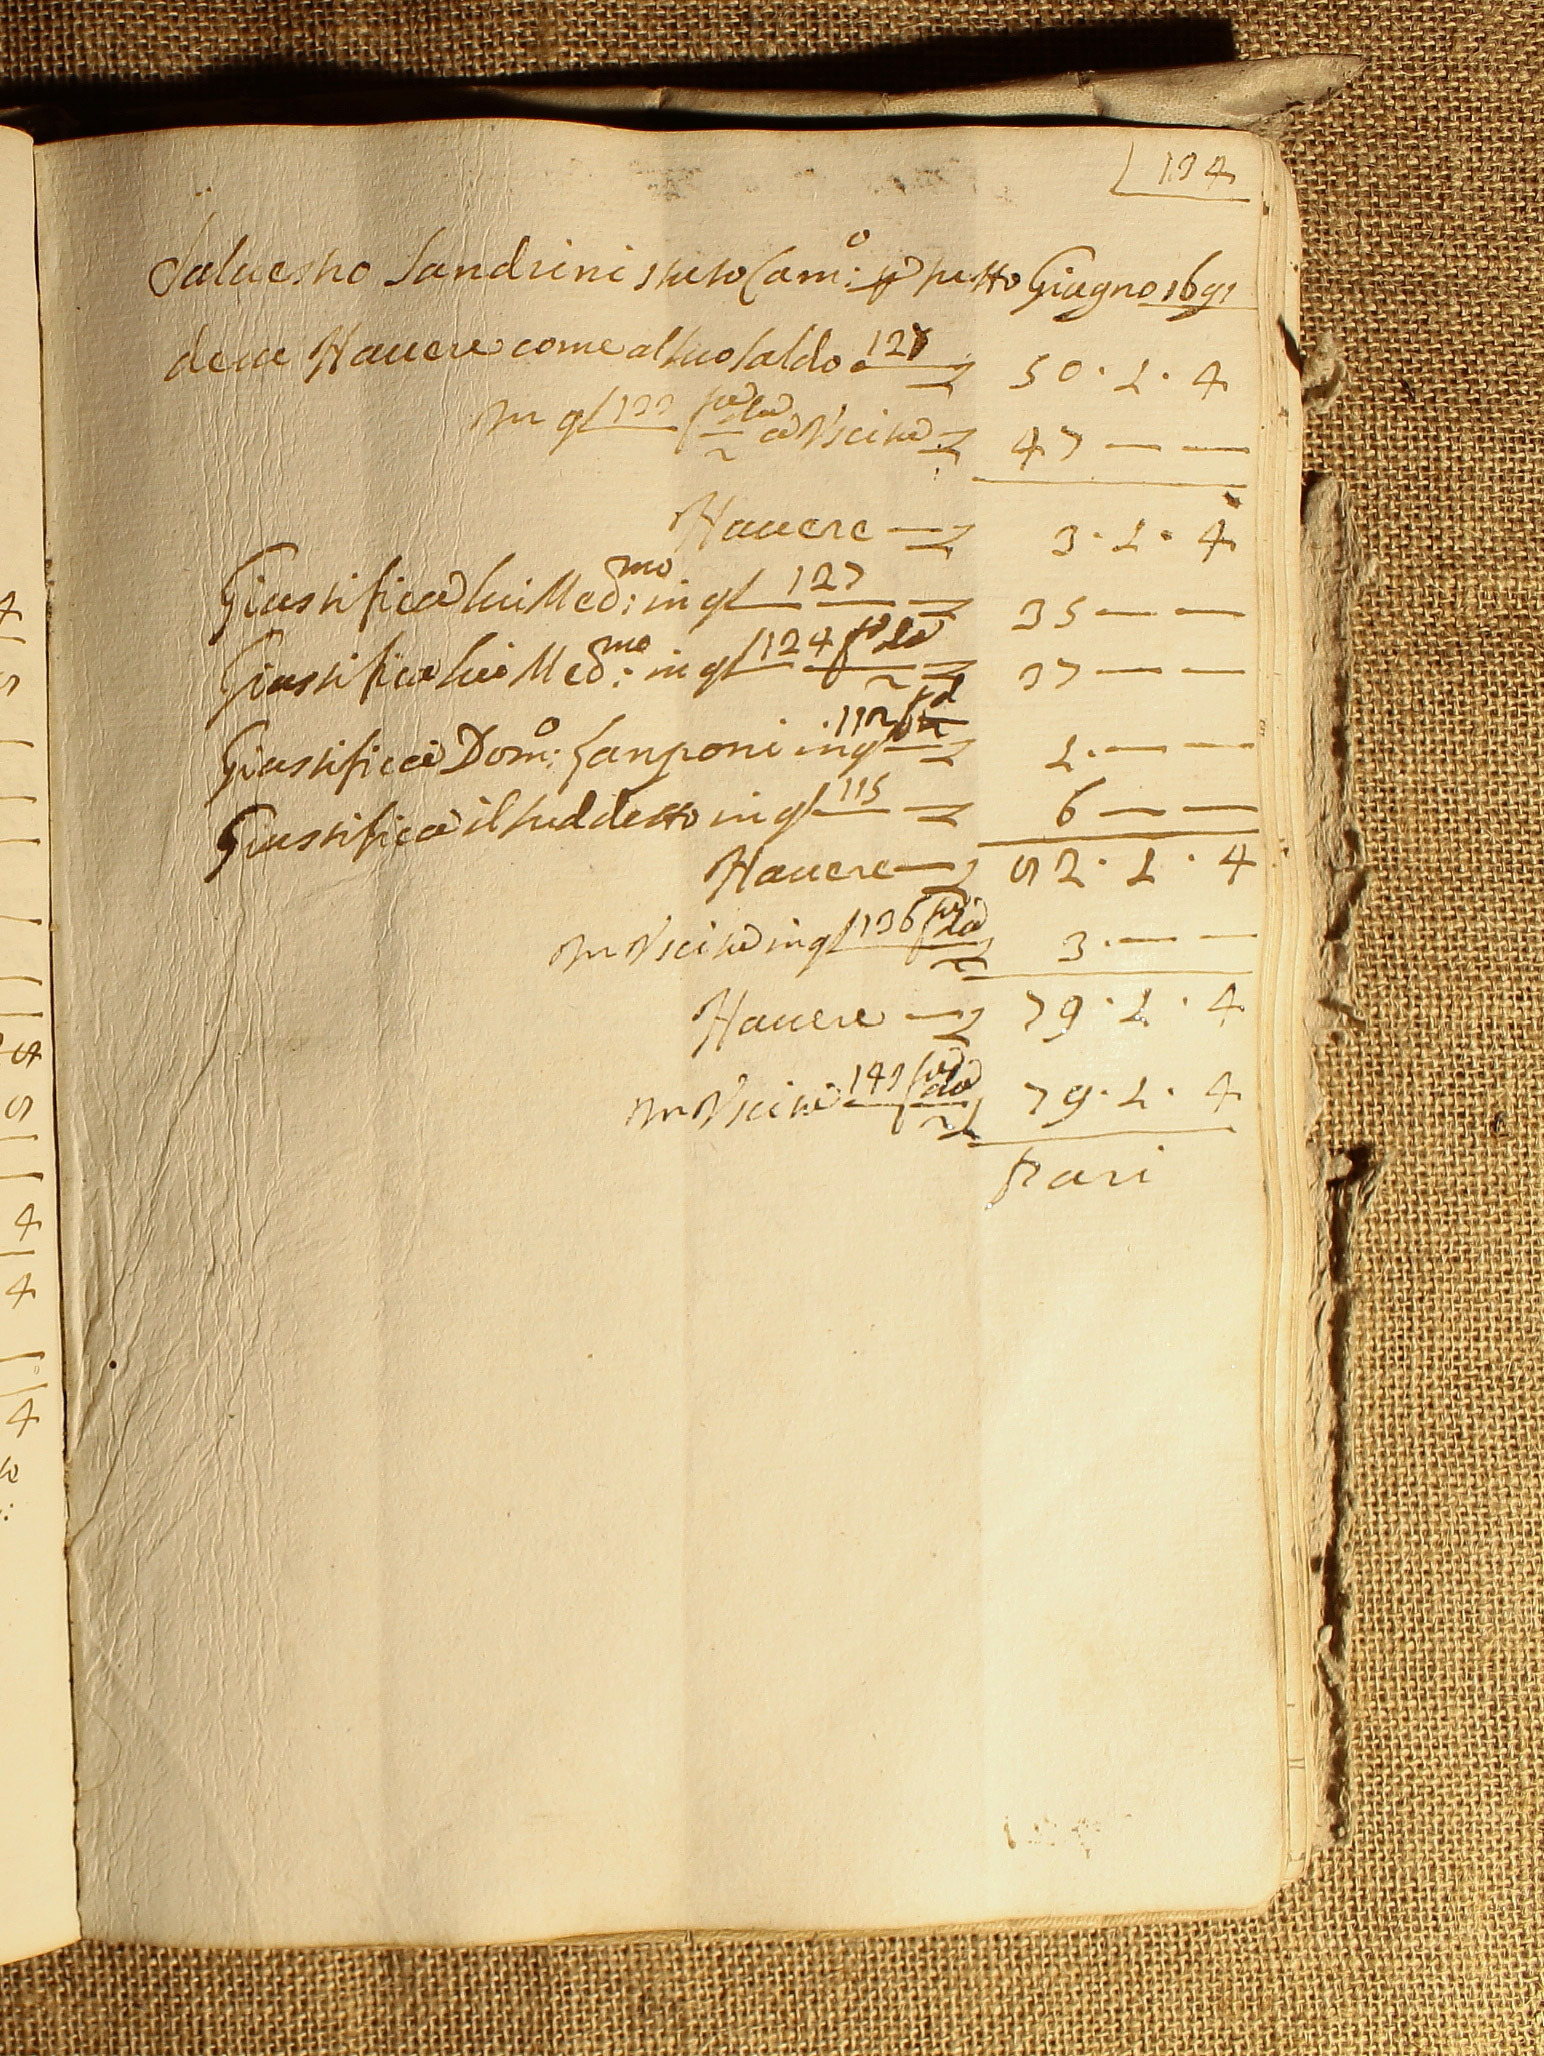 134
Saluestro Sandrini stato Cam:o p tutto Giugno 1691
deue Hauere come al suo saldo 128 50. 1. 4
In q/ 133 Vscita 47 — —
Hauere — 3. 1. 4
Giustifica lui Med:mo in q/ 127 — 35 — —
Giustifica lui Med:mo in q/ 124 — 37 — —
Giustifica Dom:o Zanponi in q/ 112 — 1. — —
Giustifica il suddetto in q/ 115 — 6 — —
Hauere — 82. 1. 4
In Vscita in q/ 136 3. — —
Hauere — 79. 1. 4
In Vscita 149 79. 1. 4
pari
4
4
4